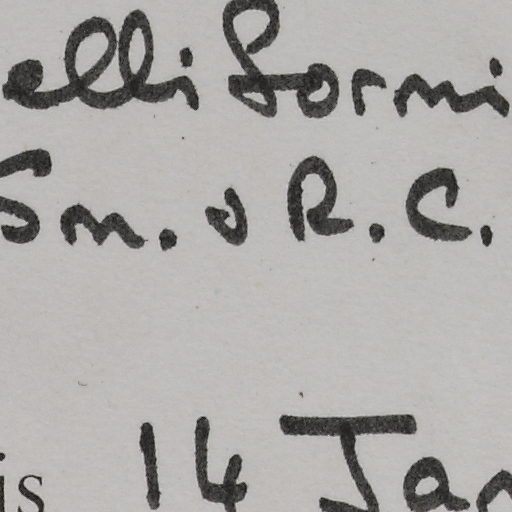 elliformi
Sm. & R.C.
is 14 Jan